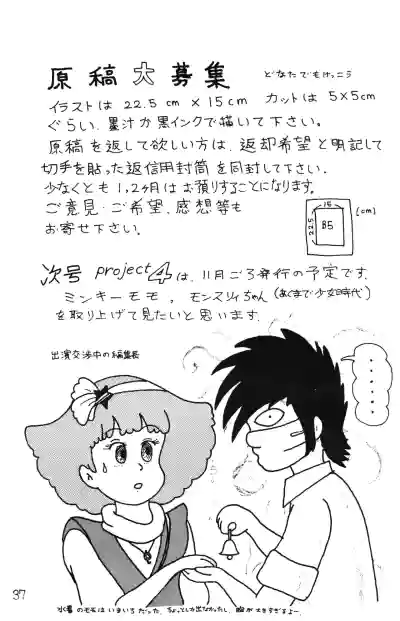 原稿大募集 どなたでもけっこう
イラストは 22.5cm×15cm カットは 5×5cm
ぐらい、墨汁か黒インクで描いて下さい。
原稿を返して欲しい方は、返却希望と明記して
切手を貼った返信用封筒を同封して下さい。
少なくとも1,2ヶ月はお預りすることになります。
ご意見・ご希望、感想等も
お寄せ下さい。
15
22.5
B5
(cm)
次号 project4は、11月ごろ発行の予定です。
ミンキーモモ, モンスリィちゃん(あくまで少女時代)
を取り上げて見たいと思います。
出演交渉中の編集長
・・・・・・・・
37
水着のモモはいまいちだった、ちょっとしか出なかったし、胸が大きすぎるよー。